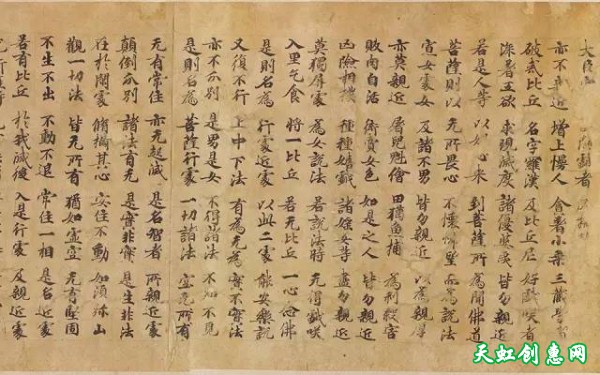 亦不親近 增上慢人 貪著小乘 三藏學者
破戒比丘 名字羅漢 及比丘尼 好戲咲者
深著五欲 求現滅度 諸優婆夷 皆勿親近
若是人等 以好心來 到菩薩所 為聞佛道
菩薩則以 无所畏心 不懷悕望 而為說法
寡女處女 及諸不男 皆勿親近 以為親厚
亦莫親近 屠兒魁膾 田獵魚捕 為利殺害
販肉自活 衒賣女色 如是之人 皆勿親近
凶險相撲 種種嬉戲 諸婬女等 盡勿親近
莫獨屏處 為女說法 若說法時 无得戲咲
入里乞食 將一比丘 若无比丘 一心念佛
是則名為 行處近處 以此二處 能安樂說
又復不行 上中下法 有為无為 實不實法
亦不分別 是男是女 不得諸法 不知不見
是則名為 菩薩行處 一切諸法 空无所有
无有常住 亦无起滅 是名智者 所親近處
顛倒分別 諸法有无 是實非實 是生非生
在於閑處 脩攝其心 安住不動 如須弥山
觀一切法 皆无所有 猶如虛空 无有堅固
不生不出 不動不退 常住一相 是名近處
若有比丘 於我滅後 入是行處 及親近處
天虹创惠网